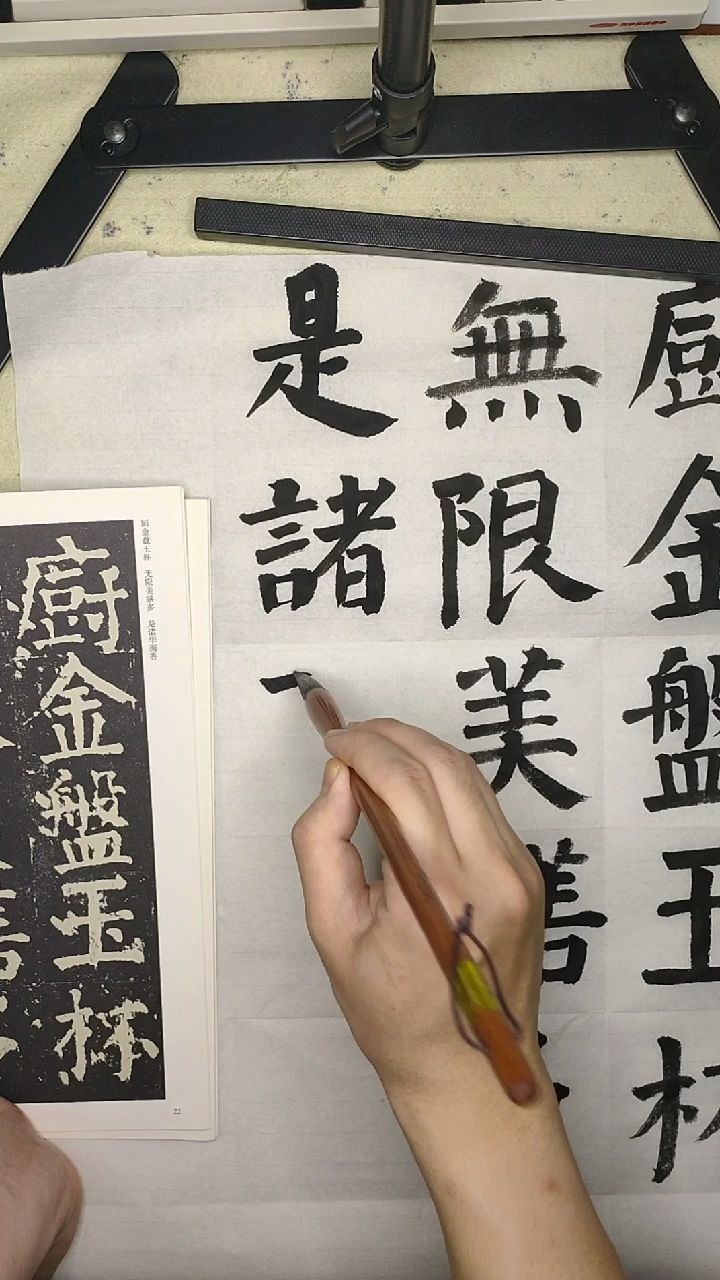 廚金盤玉杯
無限美
是諸
厨金盘玉杯 无限美膳多 是诸华
廚金盤玉杯
22